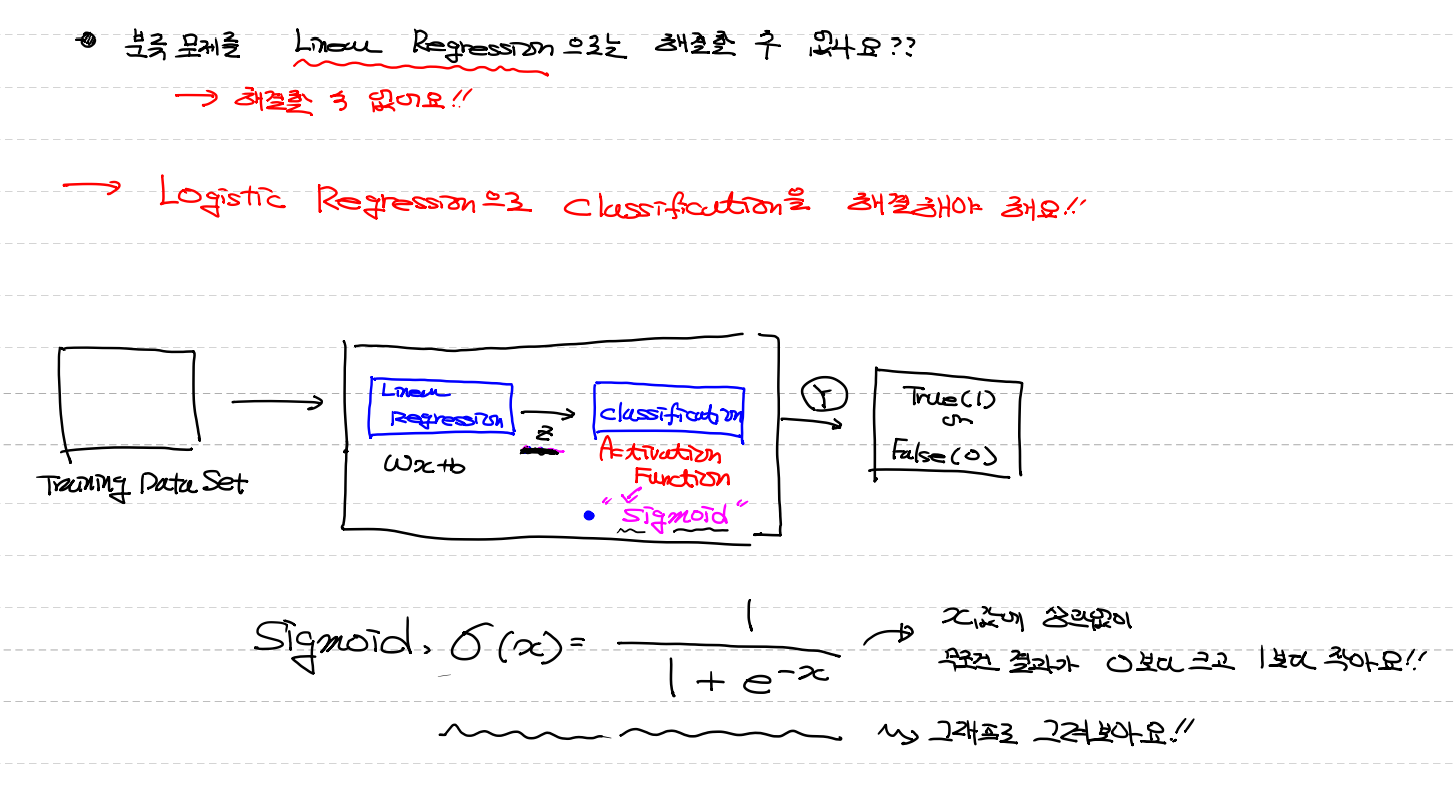 분류 문제를 Linear Regression으로는 해결할 수 없나요??
→ 해결할 수 없어요!!
→ Logistic Regression으로 Classification을 해결해야 해요!!
Training Data Set
Linear
Regression
Wx+b
z
classification
Activation
Function
"Sigmoid"
Y
True(1)
or
False(0)
Sigmoid, σ(x) = 1 / (1 + e^-x)
→ x값에 상관없이
무조건 결과가 0보다 크고 1보다 작아요!!
그래프로 그려보아요!!